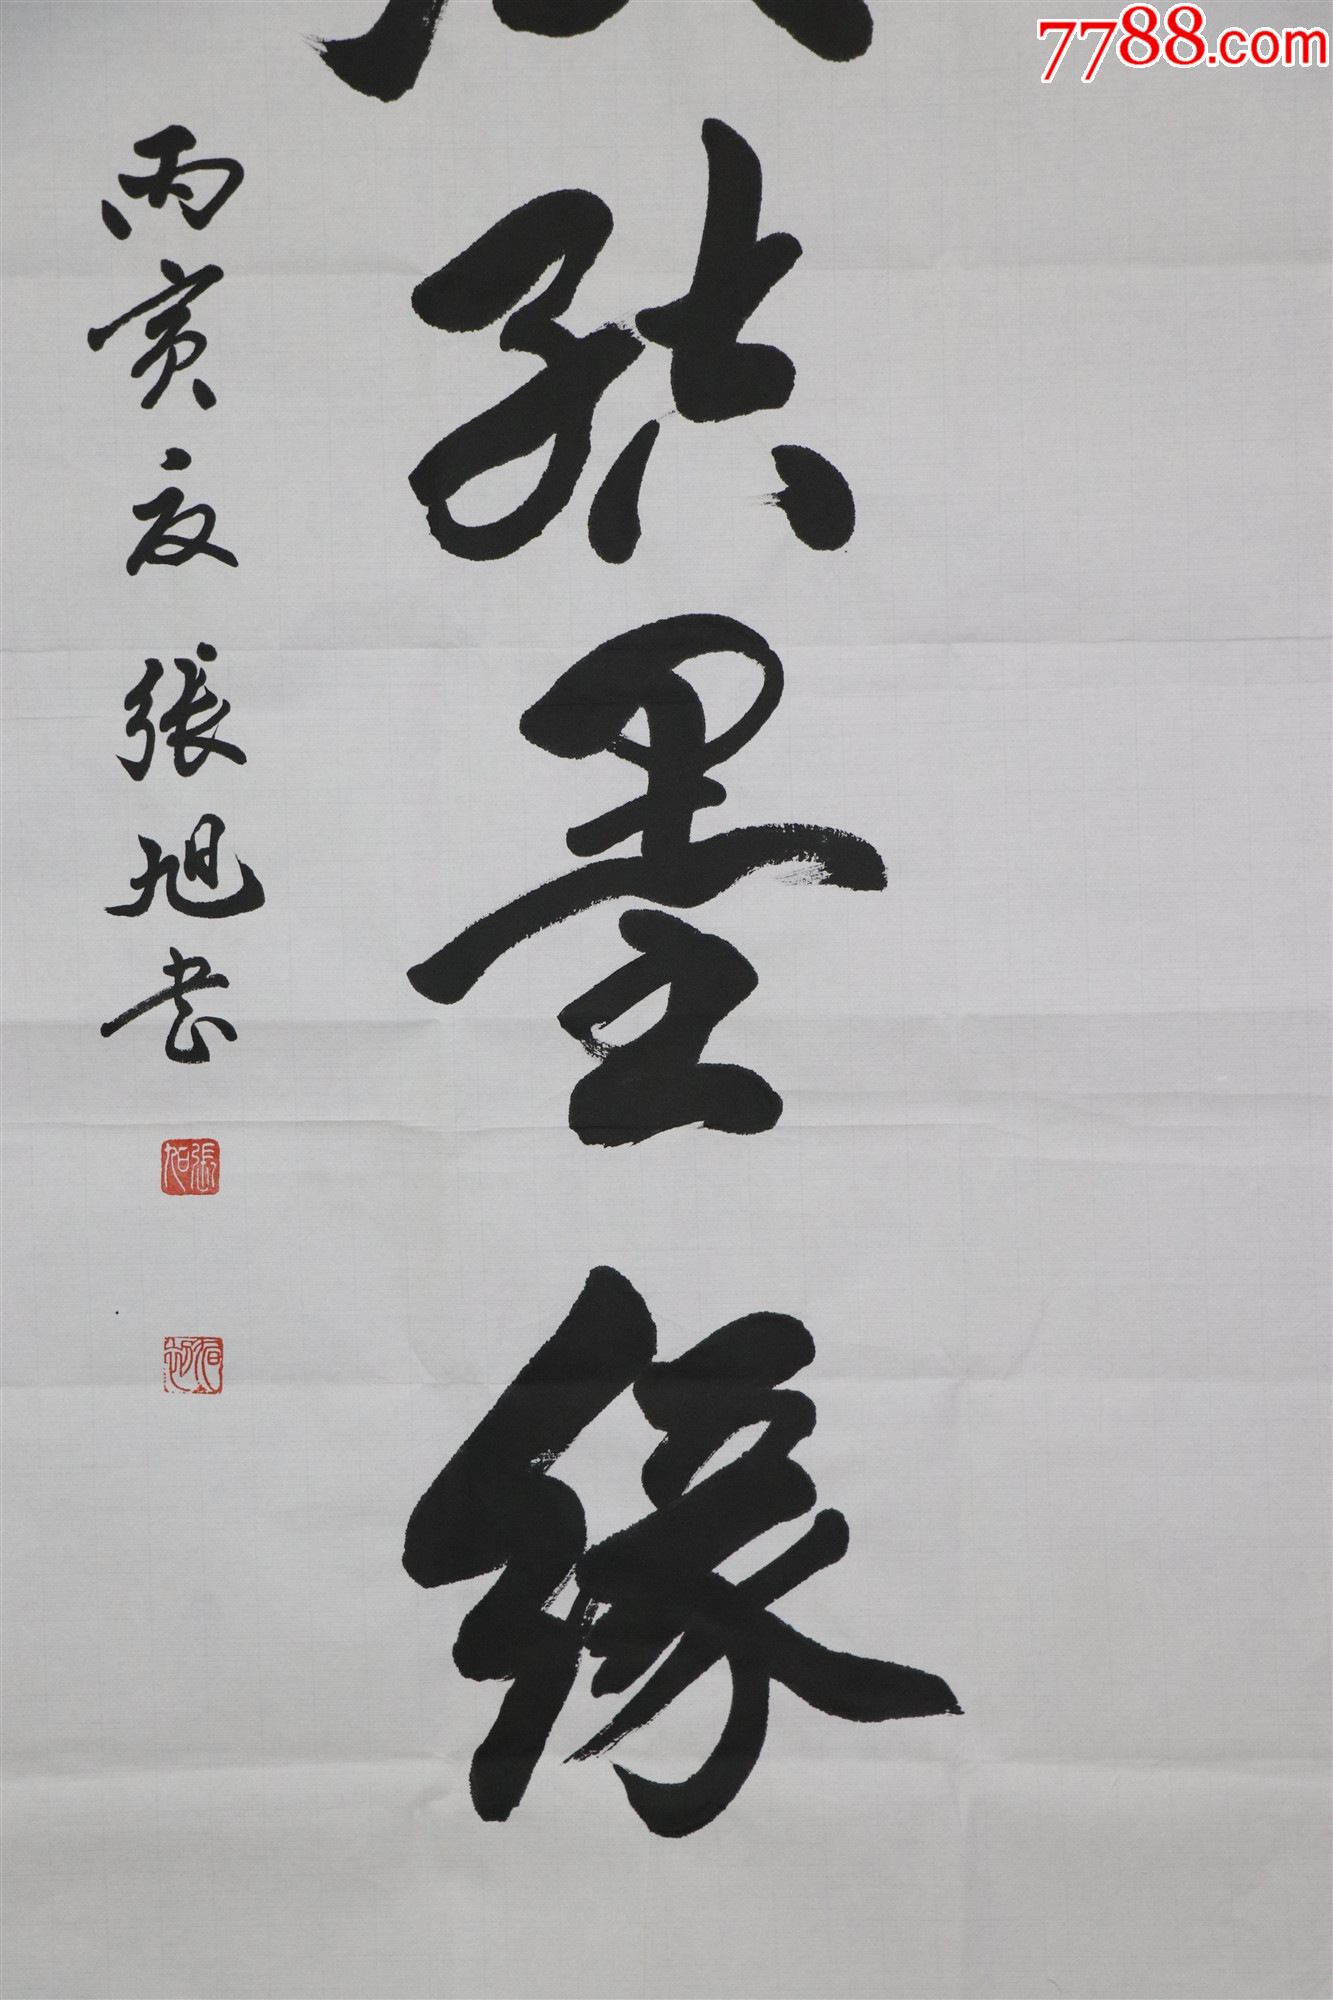 7788.com
結墨緣
丙寅夏 張旭書
張旭